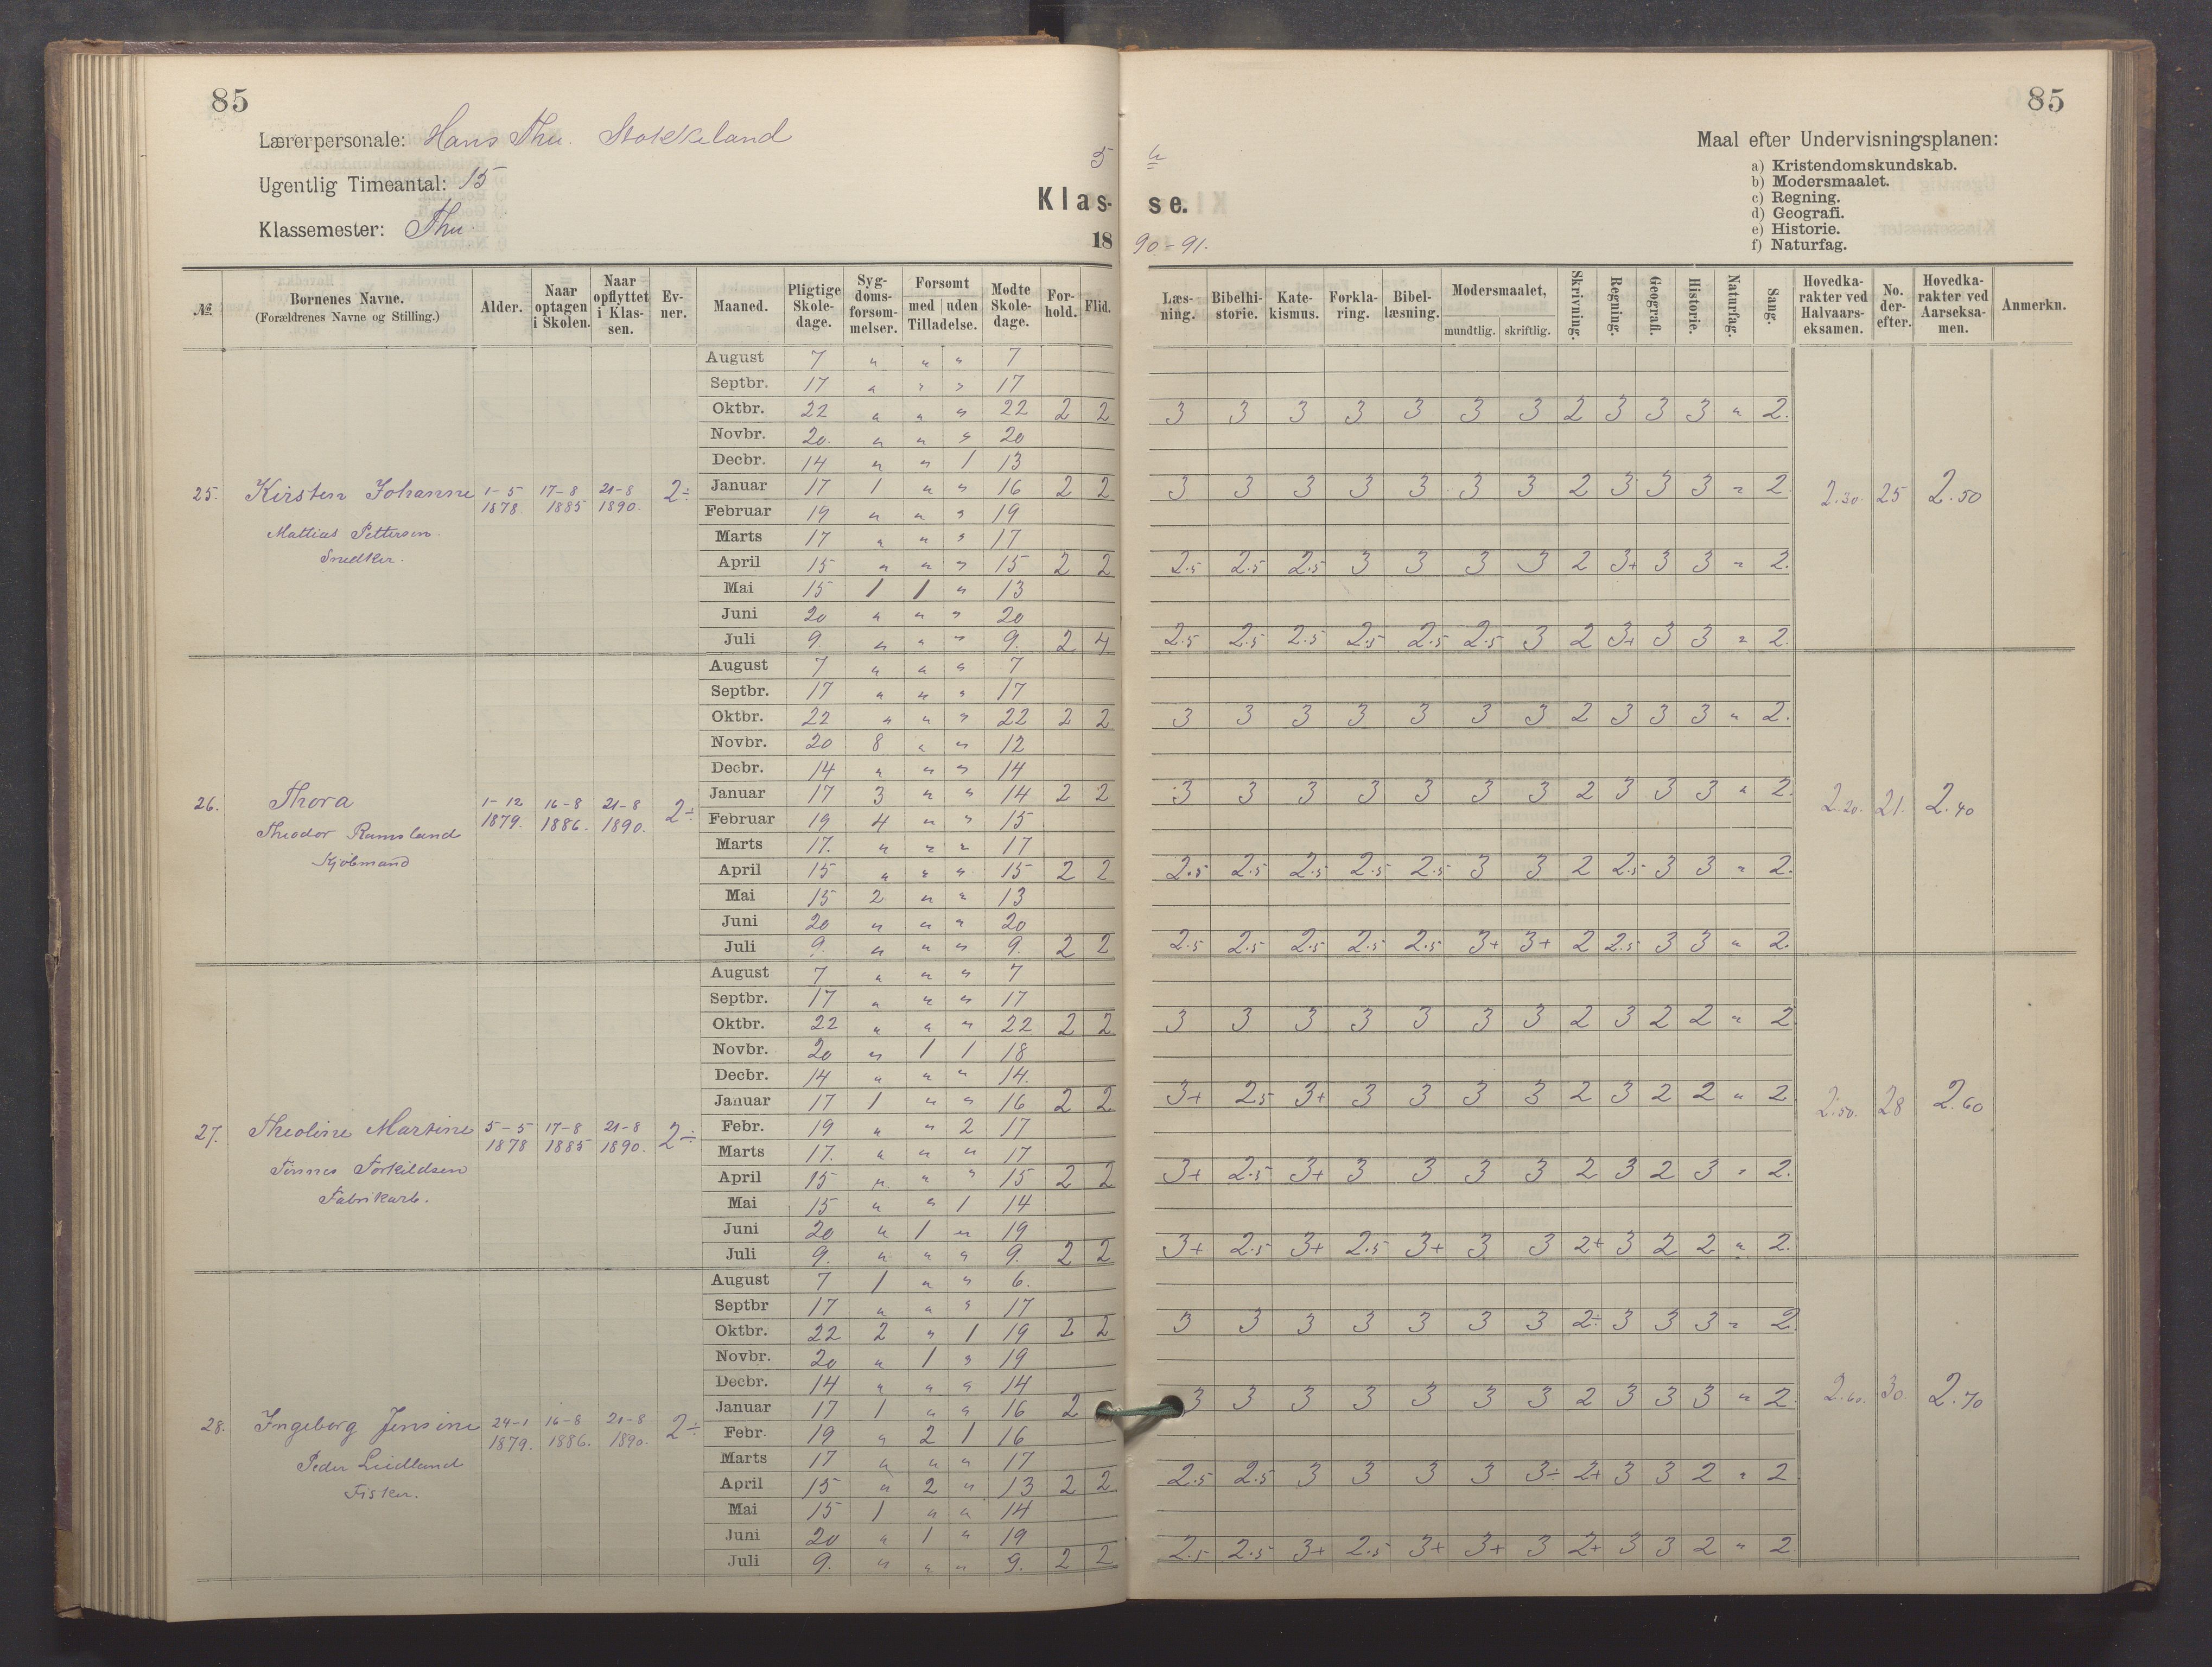 85
Lærerpersonale: Hans Thu. Stokkeland
Ugentlig Timeantal: 15
Klassemester: Thu.
5
Klas-
18
№ Børnenes Navne. (Forældrenes Navne og Stilling.) Alder. Naar optagen i Skolen. Naar opflyttet i Klassen. Evner. Maaned. Pligtige Skoledage. Sygdomsforsømmelser. Forsømt med uden Tilladelse. Mødte Skoledage. Forhold. Flid.
August 7 " " " 7
Septbr. 17 " " " 17
Oktbr. 22 " " " 22 2 2
Novbr. 20. " " " 20
Decbr. 14 " " 1 13
25. Kirsten Johanne 1-5 1878. 17-8 1885 21-8 1890. 2÷
Januar 17 1 " " 16 2 2
Februar 19 " " " 19
Mathias Pettersen.
Marts 17 " " " 17
Snedker.
April 15 " " " 15 2 2
Mai 15 1 1 " 13
Juni 20 " " " 20
Juli 9. " " " 9. 2 4
August 7 " " " 7
Septbr. 17 " " " 17
Oktbr. 22 " " " 22 2 2
Novbr. 20 8 " " 12
Decbr. 14 " " " 14
26. Thora 1-12 1879. 16-8 1886. 21-8 1890. 2÷
Januar 17 3 " " 14 2 2
Theodor Ramsland
Februar 19 4 " " 15
Kjøbmand
Marts 17. " " " 17
April 15 " " " 15 2 2
Mai 15 2 " " 13
Juni 20 " " " 20
Juli 9. " " " 9. 2 2
August 7 " " " 7
Septbr. 17 " " " 17
Oktbr. 22 " " " 22 2 2
Novbr. 20 " 1 1 18
Decbr. 14 " " " 14.
Januar 17 1 " " 16 2 2
27. Theoline Martine 5-5 1878 17-8 1885 21-8 1890. 2÷
Febr. 19 " " 2 17
Tønnes Torkildsen
Marts 17. " " " 17
Fabrikarb.
April 15 " " " 15 2 2
Mai 15 " " 1 14
Juni 20 " 1 " 19
Juli 9. " " " 9. 2 2
August 7 1 " " 6.
Septbr 17 " " " 17
Oktbr. 22 2 " 1 19 2 2
Novbr. 20 " 1 " 19
Decbr. 14 " " " 14
Januar 17 1 " " 16 2
28. Ingeborg Jensine 24-1 1879. 16-8 1886. 21-8 1890. 2÷
Febr. 19 " 2 1 16
Peder Leidland
Marts 17 " " " 17
Fisker.
April 15 " 2 " 13 2 2
Mai 15 1 " " 14
Juni 20 " 1 " 19
Juli 9. " " " 9. 2 2
85
Maal efter Undervisningsplanen:
a) Kristendomskundskab.
b) Modersmaalet.
c) Regning.
d) Geografi.
e) Historie.
f) Naturfag.
se.
90-91.
Læsning. Bibelhistorie. Katekismus. Forklaring. Bibellæsning. Modersmaalet, mundtlig. skriftlig. Skrivning. Regning. Geografi. Historie. Naturfag. Sang. Hovedkarakter ved Halvaarseksamen. No. derefter. Hovedkarakter ved Aarseksamen. Anmerkn.
3 3 3 3 3 3 3 2 3 3 3 " 2.
3 3 3 3 3 3 3 2 3 3 3 " 2
2.30. 25 2.50
2.5 2.5 2.5 3 3 3 3 2 3+ 3 3 " 2.
2.5 2.5 2.5 2.5 2.5 2.5 3 2 3+ 3 3 " 2.
3 3 3 3 3 3 3 2 3 3 3 " 2.
3 3 3 3 3 3 3 2 3 3 3 " 2
2.20. 21. 2.40
2.5 2.5 2.5 2.5 2.5 3 3 2 2.5 3 3 " 2.
2.5 2.5 2.5 2.5 2.5 3+ 3+ 2 2.5 3 3 " 2.
3 3 3 3 3 3 3 2 3 2 2 " 2
3+ 2.5 3+ 3 3 3 3 2 3 2 2 " 2
2.50. 28 2.60
3+ 2.5 3+ 3 3 3 3 2 3 2 3 " 2.
3+ 2.5 3+ 2.5 3+ 3 3 2+ 3 2 2 " 2.
3 3 3 3 3 3 3 2÷ 3 3 3 " 2
3 3 3 3 3 3 3 2 3 3 3 " 2.
2.60. 30. 2.70
2.5 2.5 3 3 3 3 3÷ 2+ 3 3 2 " 2
2.5 2.5 3+ 2.5 3+ 3+ 3 2+ 3 3 2 " 2